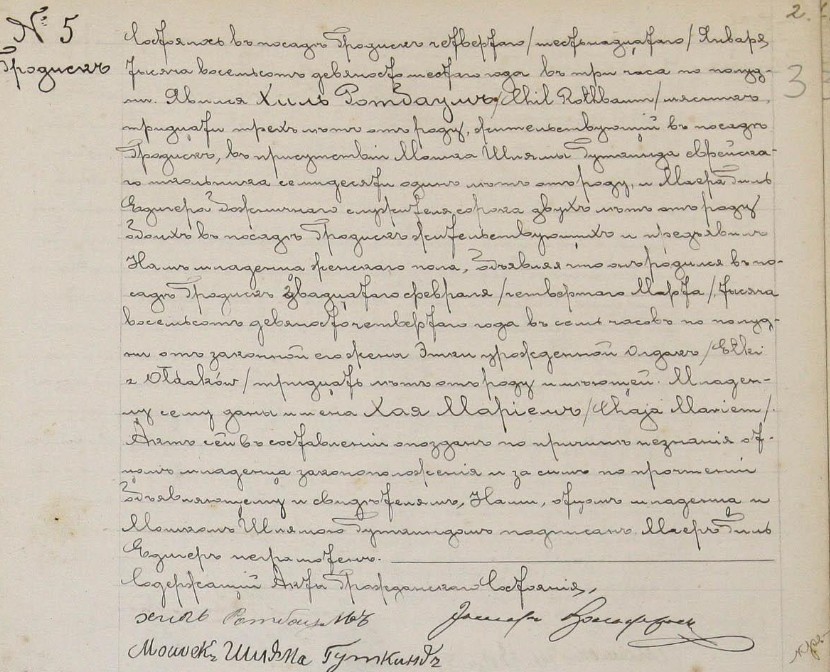 № 5
Гродискъ
2.
3
Состоялось въ посадѣ Гродискъ четвертаго /шестнадцатаго/ Января
тысяча восемьсотъ девяносто шестаго года въ три часа по полуд-
ни. Явился Хиль Ротбаумъ /Chil Rothbaum/ мясникъ,
тридцати трехъ лѣтъ отъ роду, жительствующій въ посадѣ
Гродискъ, въ присутствіи Мошка Шлямы Гуткинда еврейска-
го школьника семидесяти одинъ лѣтъ отъ роду, и Маера Гиль
Божничнаго служителя сорока двухъ лѣтъ отъ роду
обоихъ въ посадѣ Гродискъ жительствующихъ и предъявилъ
Намъ младенца женскаго пола, объявляя что онъ родился въ по-
садѣ Гродискъ двадцатаго февраля /четвертаго Марта/ тысяча
восемьсотъ девяносто четвертаго года въ семь часовъ по полуд-
ни отъ законной его жены Этки урожденной Олдакъ /Etki
z Ołdaków/ тридцать лѣтъ отъ роду имѣющей. Младен-
цу сему даны имена Хая Маріемъ /Chaja Mariem/.
Актъ сей въ составленіи опозданъ по причинѣ незнанія от-
цомъ младенца законоположенія и за симъ по прочтеніи
объявляющему и свидѣтелямъ, Нами, отцомъ младенца и
Мошкомъ Шлямою Гуткиндомъ подписанъ. Маеръ Гиль
неграмотенъ.
Содержащій Акты Гражданскаго Состоянія,
хиль Ротбаумъ
Мошекъ Шляма Гуткиндъ